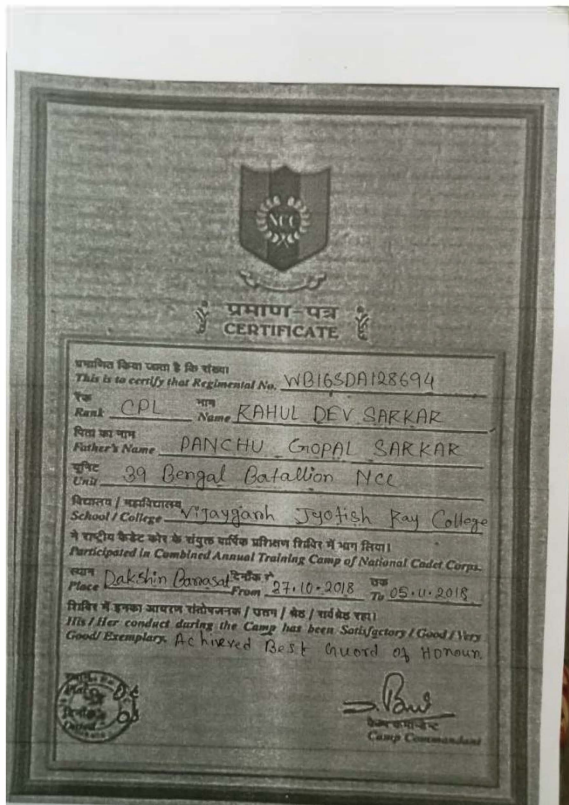 NCC
प्रमाण-पत्र
CERTIFICATE
प्रमाणित किया जाता है कि संख्या
This is to certify that Regimental No. WB16SDA128694
रैंक नाम
Rank CPL Name RAHUL DEV SARKAR
पिता का नाम
Father's Name PANCHU GOPAL SARKAR
यूनिट
Unit 39 Bengal Batallion NCC
विद्यालय / महाविद्यालय
School / College Vijaygarh Jyotish Ray College
ने राष्ट्रीय कैडेट कोर के संयुक्त वार्षिक प्रशिक्षण शिविर में भाग लिया।
Participated in Combined Annual Training Camp of National Cadet Corps.
स्थान दिनाँक से तक
Place Dakshin Barasat From 27.10.2018 To 05.11.2018
शिविर में इनका आचरण संतोषजनक / उत्तम / श्रेष्ठ / सर्वश्रेष्ठ रहा।
His / Her conduct during the Camp has been Satisfactory / Good / Very
Good/ Exemplary. Achieved Best Guord of Honour
कैम्प कमान्डेन्ट
Camp Commandant